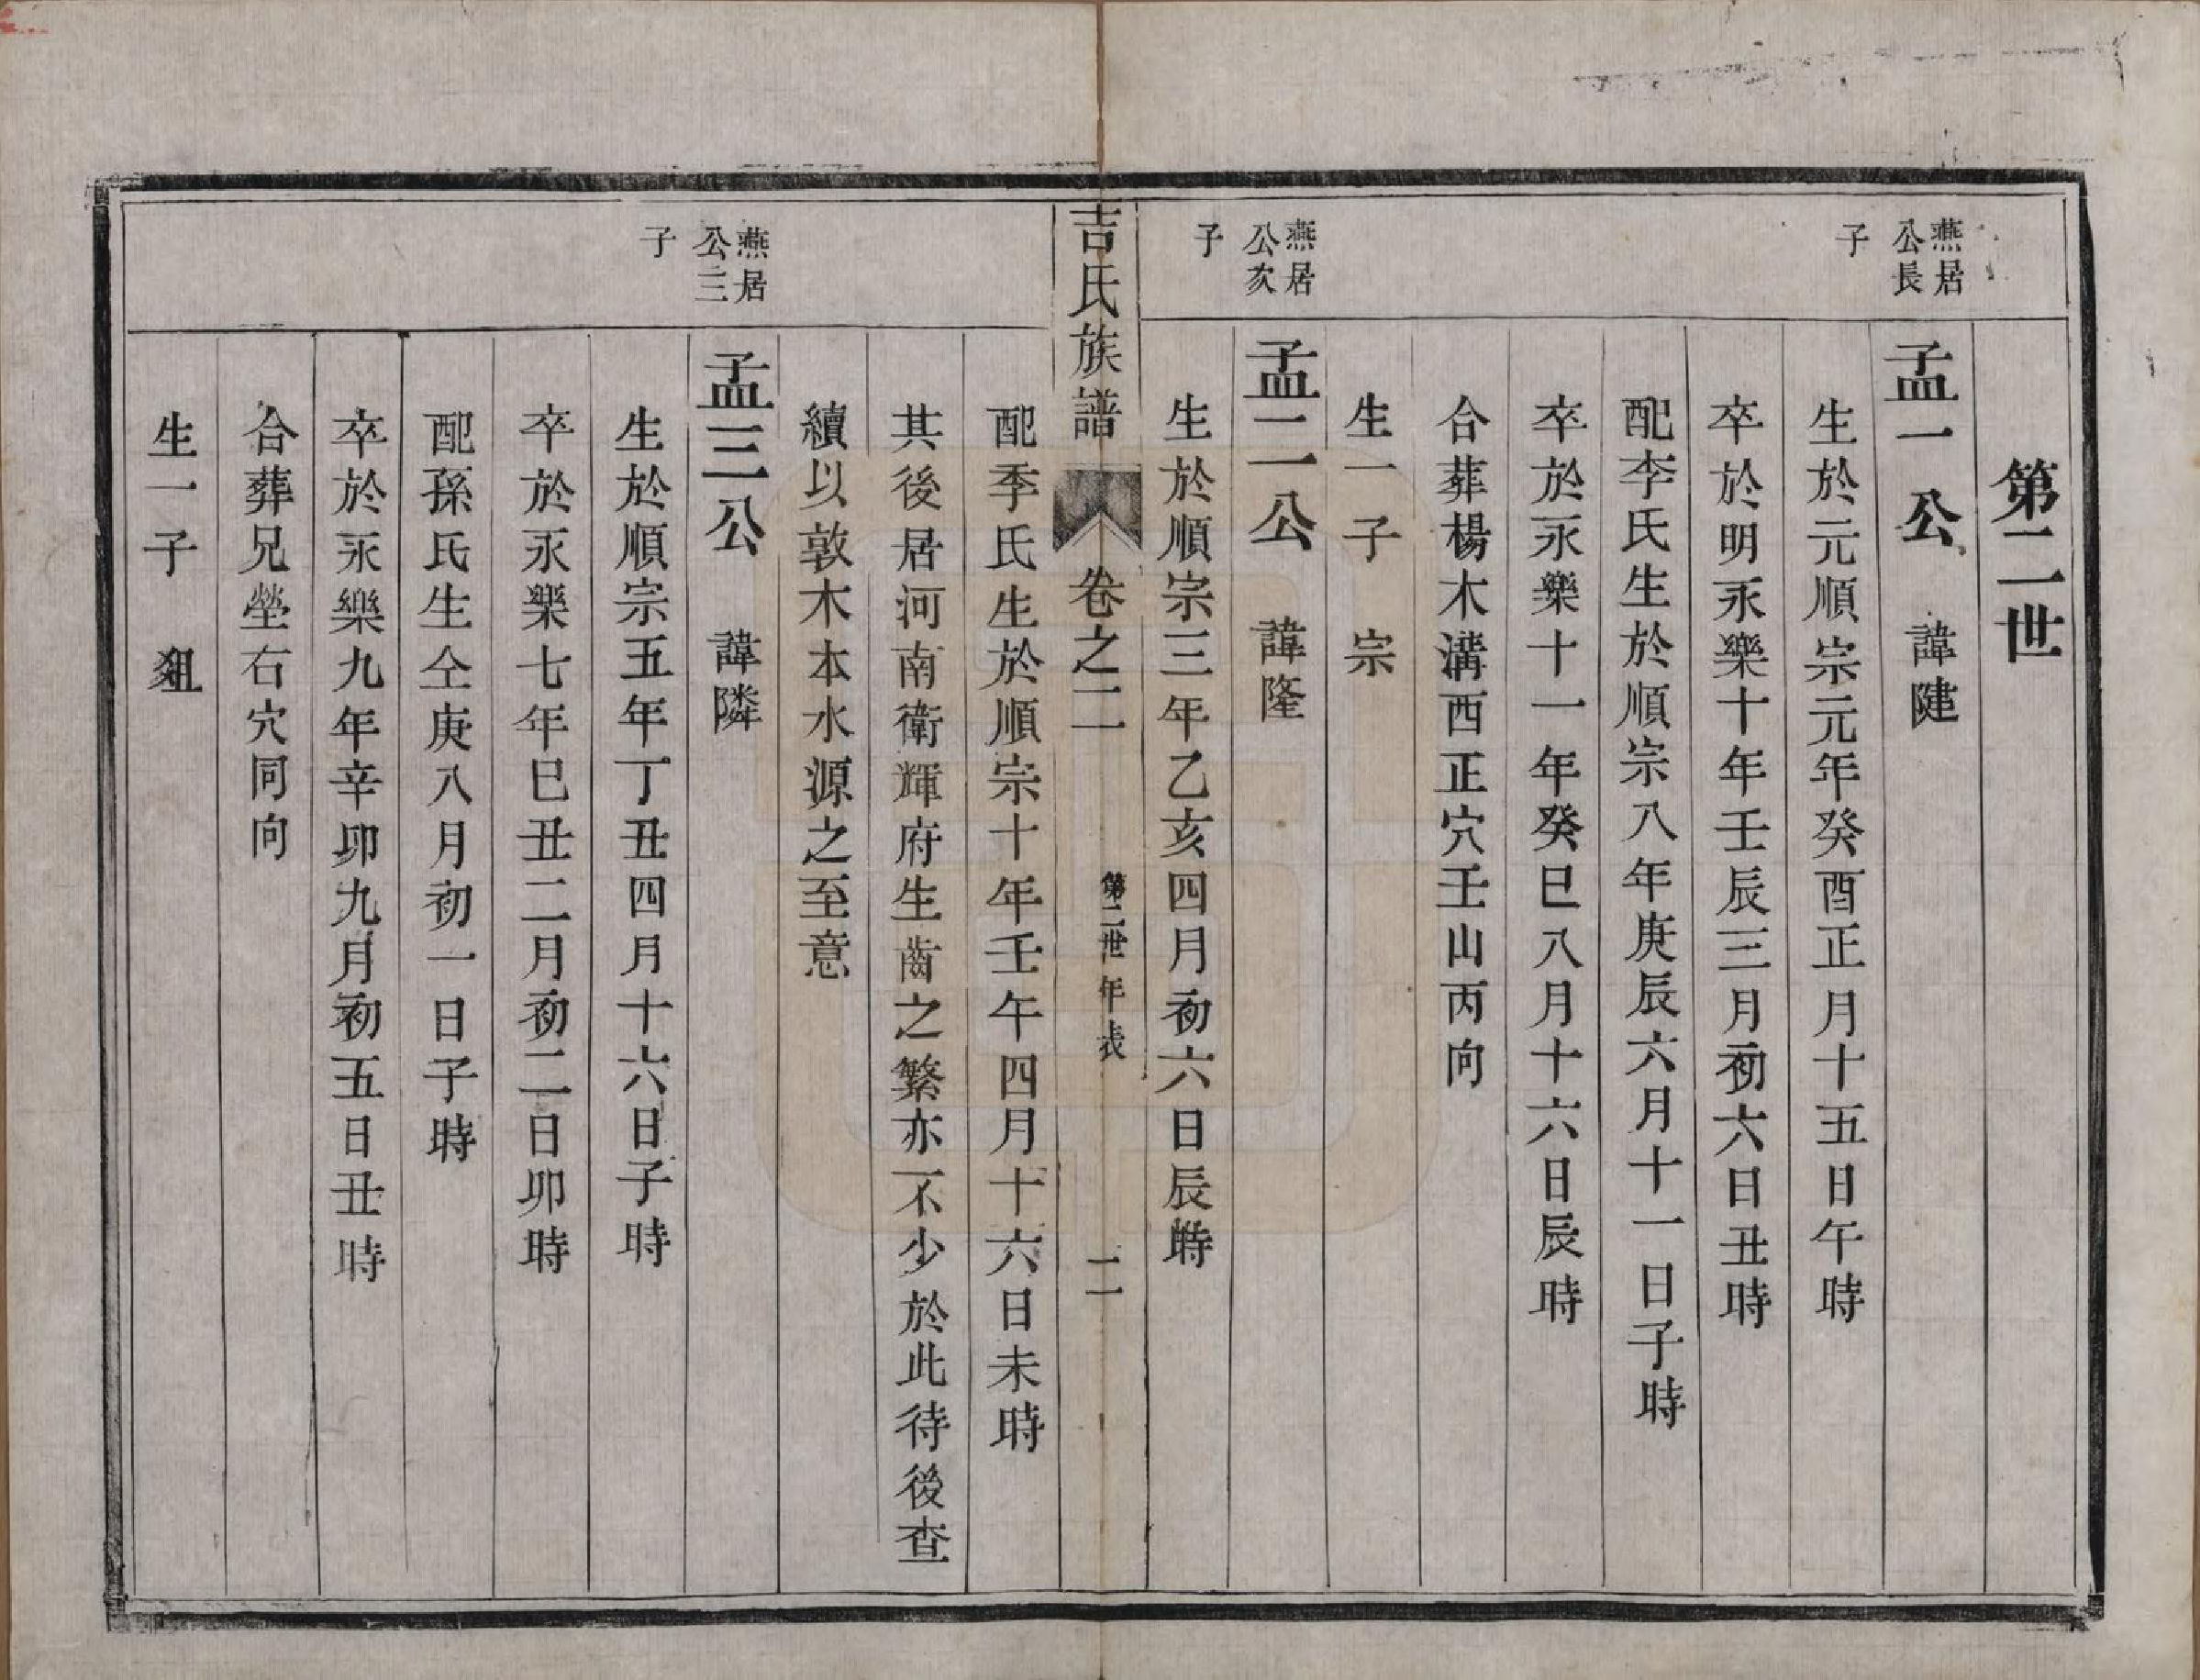 第二世
燕居
公長
子
孟一公　諱健
生於元順宗元年癸酉正月十五日午時
卒於明永樂十年壬辰三月初六日丑時
配李氏生於順宗八年庚辰六月十一日子時
卒於永樂十一年癸巳八月十六日辰時
合葬楊木溝西正穴壬山丙向
生一子　宗
燕居
公次
子
孟二公　諱隆
生於順宗三年乙亥四月初六日辰時
吉氏族譜　卷之二　第二世年表　二
配季氏生於順宗十年壬午四月十六日未時
其後居河南衛輝府生齒之繁亦不少於此待後查
續以敦木本水源之至意
燕居
公三
子
孟三公　諱隣
生於順宗五年丁丑四月十六日子時
卒於永樂七年巳丑二月初二日卯時
配孫氏生仝庚八月初一日子時
卒於永樂九年辛卯九月初五日丑時
合葬兄塋右穴同向
生一子